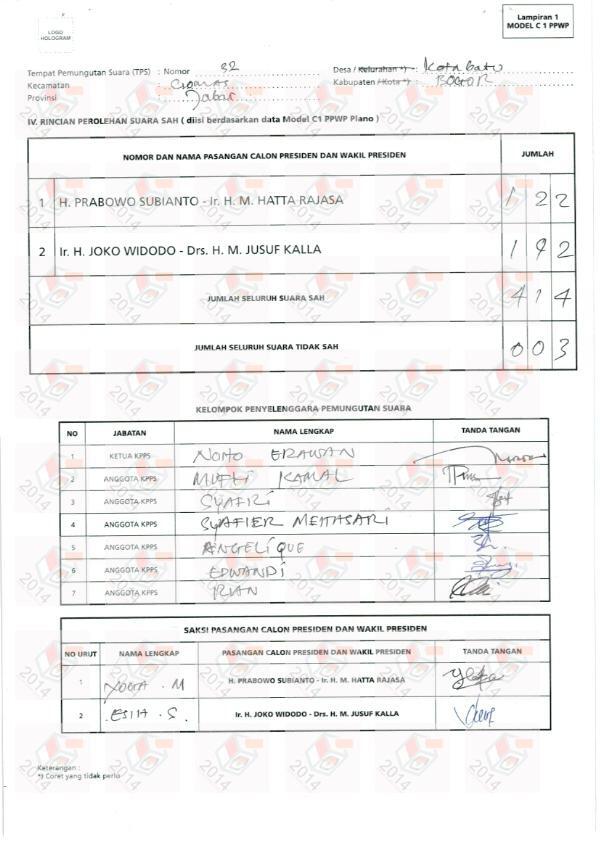 LOGO
HOLOGRAM
Lampiran 1
MODEL C 1 PPWP
Tempat Pemungutan Suara (TPS) : Nomor 32 Desa / Kelurahan *) : Kota Batu
Kecamatan : Ciomas Kabupaten / Kota *) : BOGOR
Provinsi : Jabar
IV. RINCIAN PEROLEHAN SUARA SAH ( diisi berdasarkan data Model C1 PPWP Plano )
NOMOR DAN NAMA PASANGAN CALON PRESIDEN DAN WAKIL PRESIDEN JUMLAH
1 H. PRABOWO SUBIANTO - Ir. H. M. HATTA RAJASA 1 2 2
2 Ir. H. JOKO WIDODO - Drs. H. M. JUSUF KALLA 1 9 2
JUMLAH SELURUH SUARA SAH 4 1 4
JUMLAH SELURUH SUARA TIDAK SAH 0 0 3
KELOMPOK PENYELENGGARA PEMUNGUTAN SUARA
NO JABATAN NAMA LENGKAP TANDA TANGAN
1 KETUA KPPS ERAWAN
2 ANGGOTA KPPS MUFTI KAMAL
3 ANGGOTA KPPS SYAFIRI
4 ANGGOTA KPPS SYAFIER
5 ANGGOTA KPPS ANGELIQUE
6 ANGGOTA KPPS EDWANDI
7 ANGGOTA KPPS RIAN
SAKSI PASANGAN CALON PRESIDEN DAN WAKIL PRESIDEN
NO URUT NAMA LENGKAP PASANGAN CALON PRESIDEN DAN WAKIL PRESIDEN TANDA TANGAN
1 M H. PRABOWO SUBIANTO - Ir. H. M. HATTA RAJASA
2 S. Ir. H. JOKO WIDODO - Drs. H. M. JUSUF KALLA
Keterangan :
*) Coret yang tidak perlu